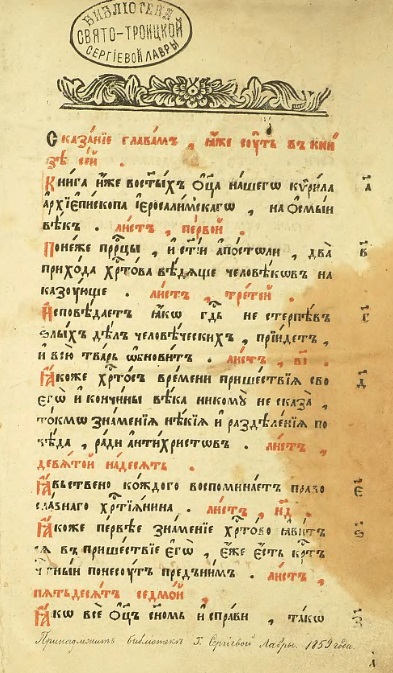 БИБЛІОТЕКА
СВЯТО-ТРОИЦКОЙ
СЕРГІЕВОЙ ЛАВРЫ
Сказанїе главамъ, ꙗ҆́же сꙋть въ кни
зѣ се́й .
Кни́га и҆́же во ст҃ы́хъ ѻ҆ц҃а̀ на́шегѡ кѷрі́ла а҃
а҆рхїепі́скопа і҆еросали́мскагѡ , на ѻ҆смы́и
вѣ́къ . ли́стъ , пе́рвой .
Поне́же прⷪ҇ро́цы , и҆ ст҃і́и а҆по́столи , два̀ в҃
прихо́да хрⷭ҇то́ва вѣ́дѧще человѣ́кѡвъ на
казꙋ́юще . ли́стъ , тре́тей .
И҆сповѣ́даетъ ꙗ҆́кѡ гдⷭ҇ь не стерпѣ́въ г҃
ѕлы́хъ дѣ́лъ человѣ́ческихъ , прїи́детъ ,
и҆ всю̀ тва́рь ѡ҆бнови́тъ . ли́стъ , в҃і .
Ꙗ҆́коже хрⷭ҇то́съ вре́мени прише́ствїѧ сво д҃
егѡ̀ и҆ кончи́ны вѣ́ка никомꙋ̀ не сказа̀ ,
то́кмѡ зна́менїѧ нѣ́кїѧ и҆ раздѣле́нїѧ по
вѣ́да , ра́ди а҆нти́христовъ . ли́стъ ,
девѧ́той на́десѧть .
Ꙗ҆́вьственно ко́ждого воспомина́етъ право
сла́внаго хрⷭ҇тїѧ́нина . ли́стъ , н҃д .
Ꙗ҆́коже пе́рвѣе зна́менїе хрⷭ҇то́во ꙗ҆ви́т
сѧ въ прише́ствїе є҆гѡ̀ , є҆́же є҆́сть крⷭ҇тъ
понесꙋ́тъ предъни́мъ . ли́стъ ,
пѧтьдесѧ́тъ седмо́й ,
Ꙗ҆́кѡ всѐ ѻ҆ц҃ъ сн҃омъ и҆спра́ви , та́кѡ
библіотекѣ Сергіевой Лавры. 1859 года.